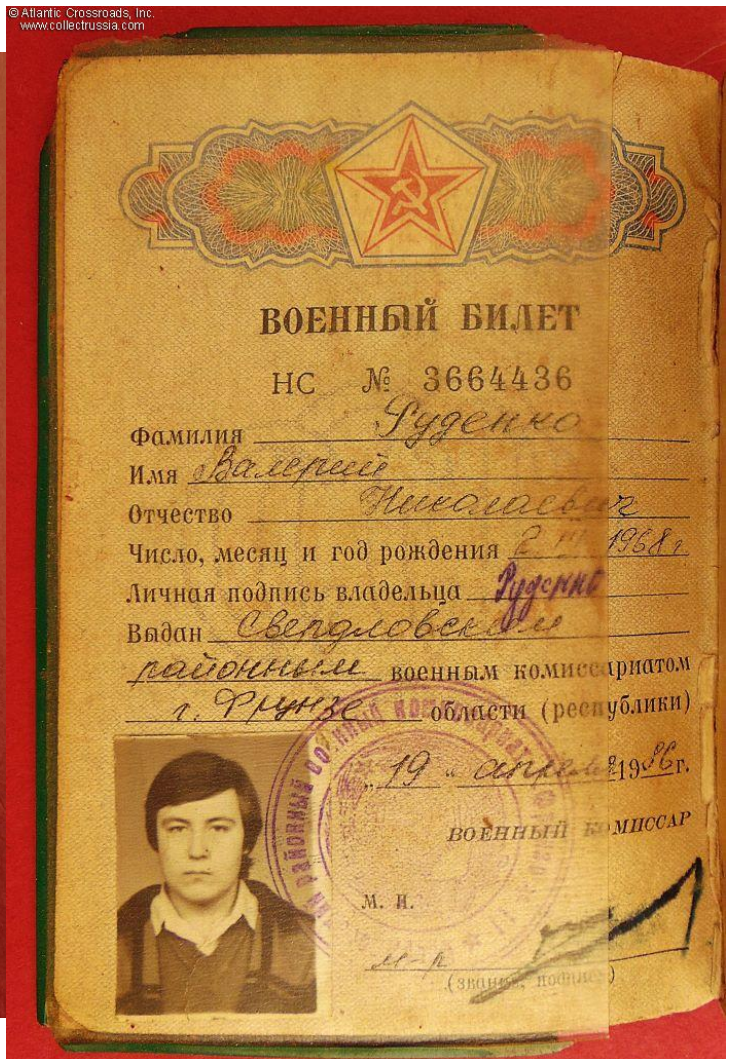 © Atlantic Crossroads, Inc.
www.collectrussia.com
ВОЕННЫЙ БИЛЕТ
НС № 3664436
Фамилия Руденко
Имя Валерий
Отчество Николаевич
Число, месяц и год рождения III 1968 г.
Личная подпись владельца Руденко
Выдан Свердловским
районным военным комиссариатом
г. Фрунзе области (республики)
„19“ апреля 1986 г.
ВОЕННЫЙ КОМИССАР
М. П.
м-р
(звание, подпись)